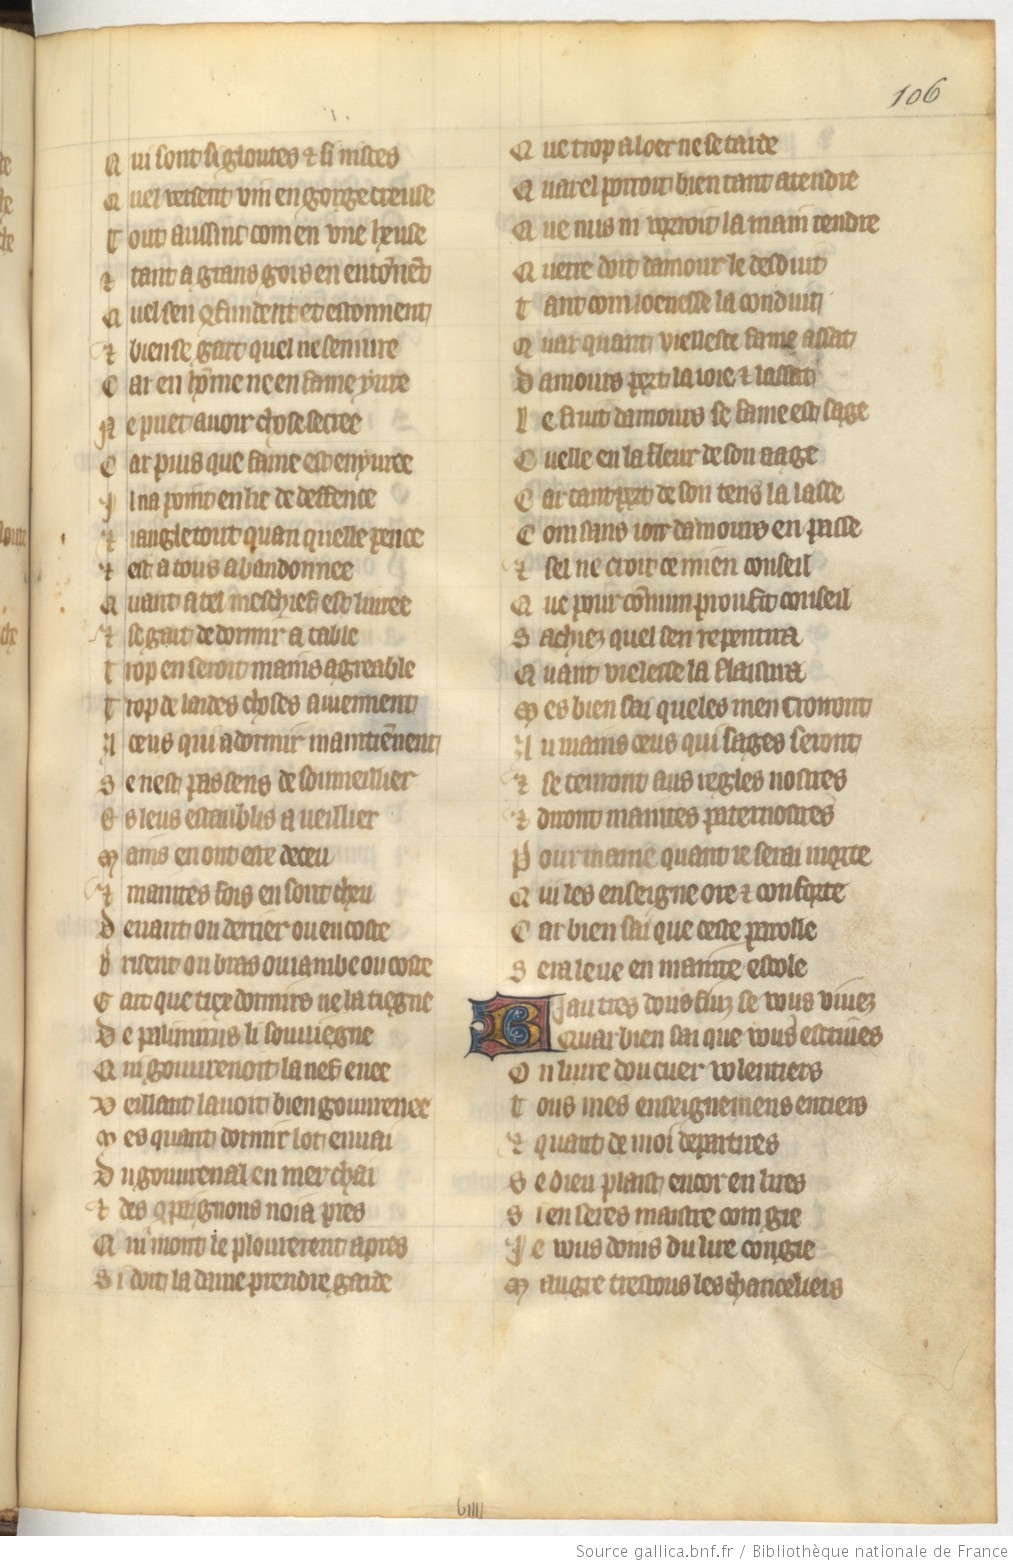 106
Qui sont si gloutes ⁊ si nices
Quel versent vin en gorge creuse
Tout aussint com en vne heuse
⁊ tant a grans gors en entōnēt
Quel sen ꝯfundent et estonnent
⁊ bien se gart quel ne seniure
Car en hōme ne en fame yure
Ne puet auoir chose secree
Car puis que fame est enyuree
Il na point en lie de deffence
⁊ iangle tout quan quelle pence
⁊ est a tous abandonnee
Quant a tel meschief est liuree
⁊ se gart de dormir a table
Trop en seroit mains agreable
Trop de laides choses auiennent
A ceus qui a dormir maintiēnent
Se nest pas sens de soumeillier
Es leus estaublis a veillier
Mains en ont este deceu
⁊ maintes fois en sont cheu
Deuant ou derrier ou en coste
Brisent ou bras ou iambe ou coste
Gart que tiex dormirs ne la tiegne
De palinurus li souuiegne
Qui gouuernoit la nef enee
Veillant lauoit bien gouuernee
Mes quant dormir lot enuai
Du gouuernal en mer chai
⁊ des ꝯpaignons noia pres
Qui mont le plourerent apres
Si doit la dame prendre garde
Que trop a ioer ne se tarde
Quar el porroit bien tant atendre
Que nus ni vorroit la main tendre
Querre doit damour le deduit
Tant com ioenesse la conduit
Quar quant viellesce fame assaut
Damours pert la ioie ⁊ lassaut
Le fruit damours se fame est sage
Cuelle en la fleur de son aage
Car tant pert de son tens la lasse
Com sans ioir damours en passe
⁊ sel ne croit ce mien conseil
Que pour cōmun proufit conseil
Sachiez quel sen repentira
Quant vielesce la flaistira
Mes bien sai queles men croiront
Au mains ceus qui sages seront
⁊ se tenront aus regles nostres
⁊ diront maintes paternostres
Pour mame quant ie serai morte
Qui les enseigne ore ⁊ conforte
Car bien sai que ceste parolle
Sera leue en mainte escole
Biau tres dous fiuz se vous viuez
Quar bien sai que vous escriues
On liure dou cuer volentiers
Tous mes enseignemens entiers
⁊ quant de moi departires
Se dieu plaist encor en lires
Si en seres maistre com gie
Je vous doins du lire congie
Maugre trestous les chanceliers
Source gallica.bnf.fr / Bibliothèque nationale de France